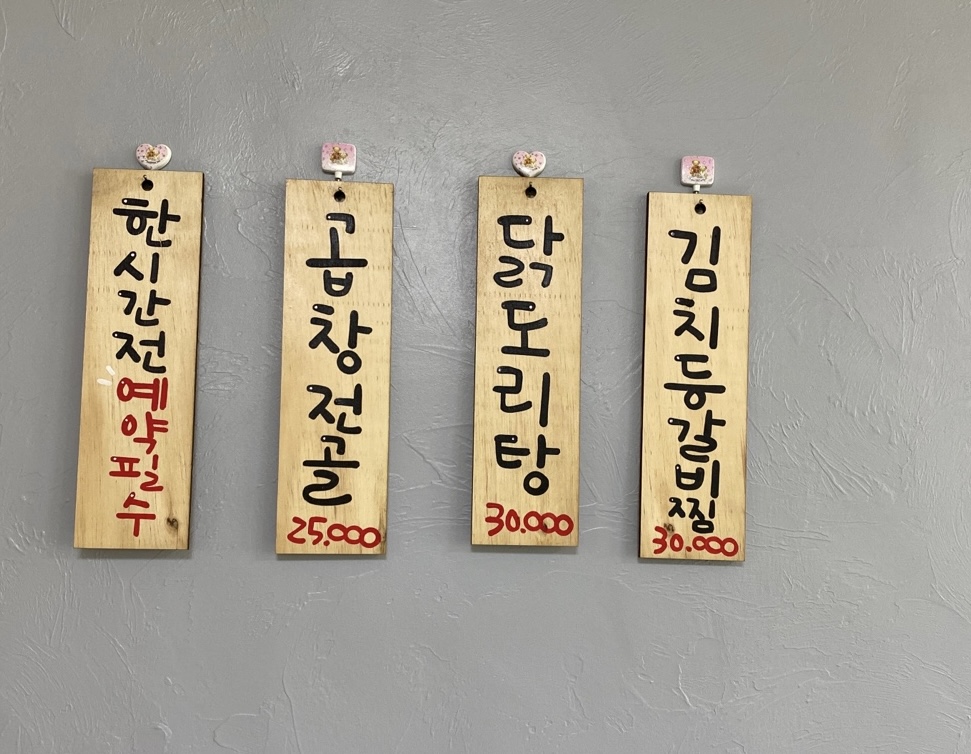 한시간전예약필수
곱창전골
25.000
닭도리탕
30.000
김치등갈비찜
30.000